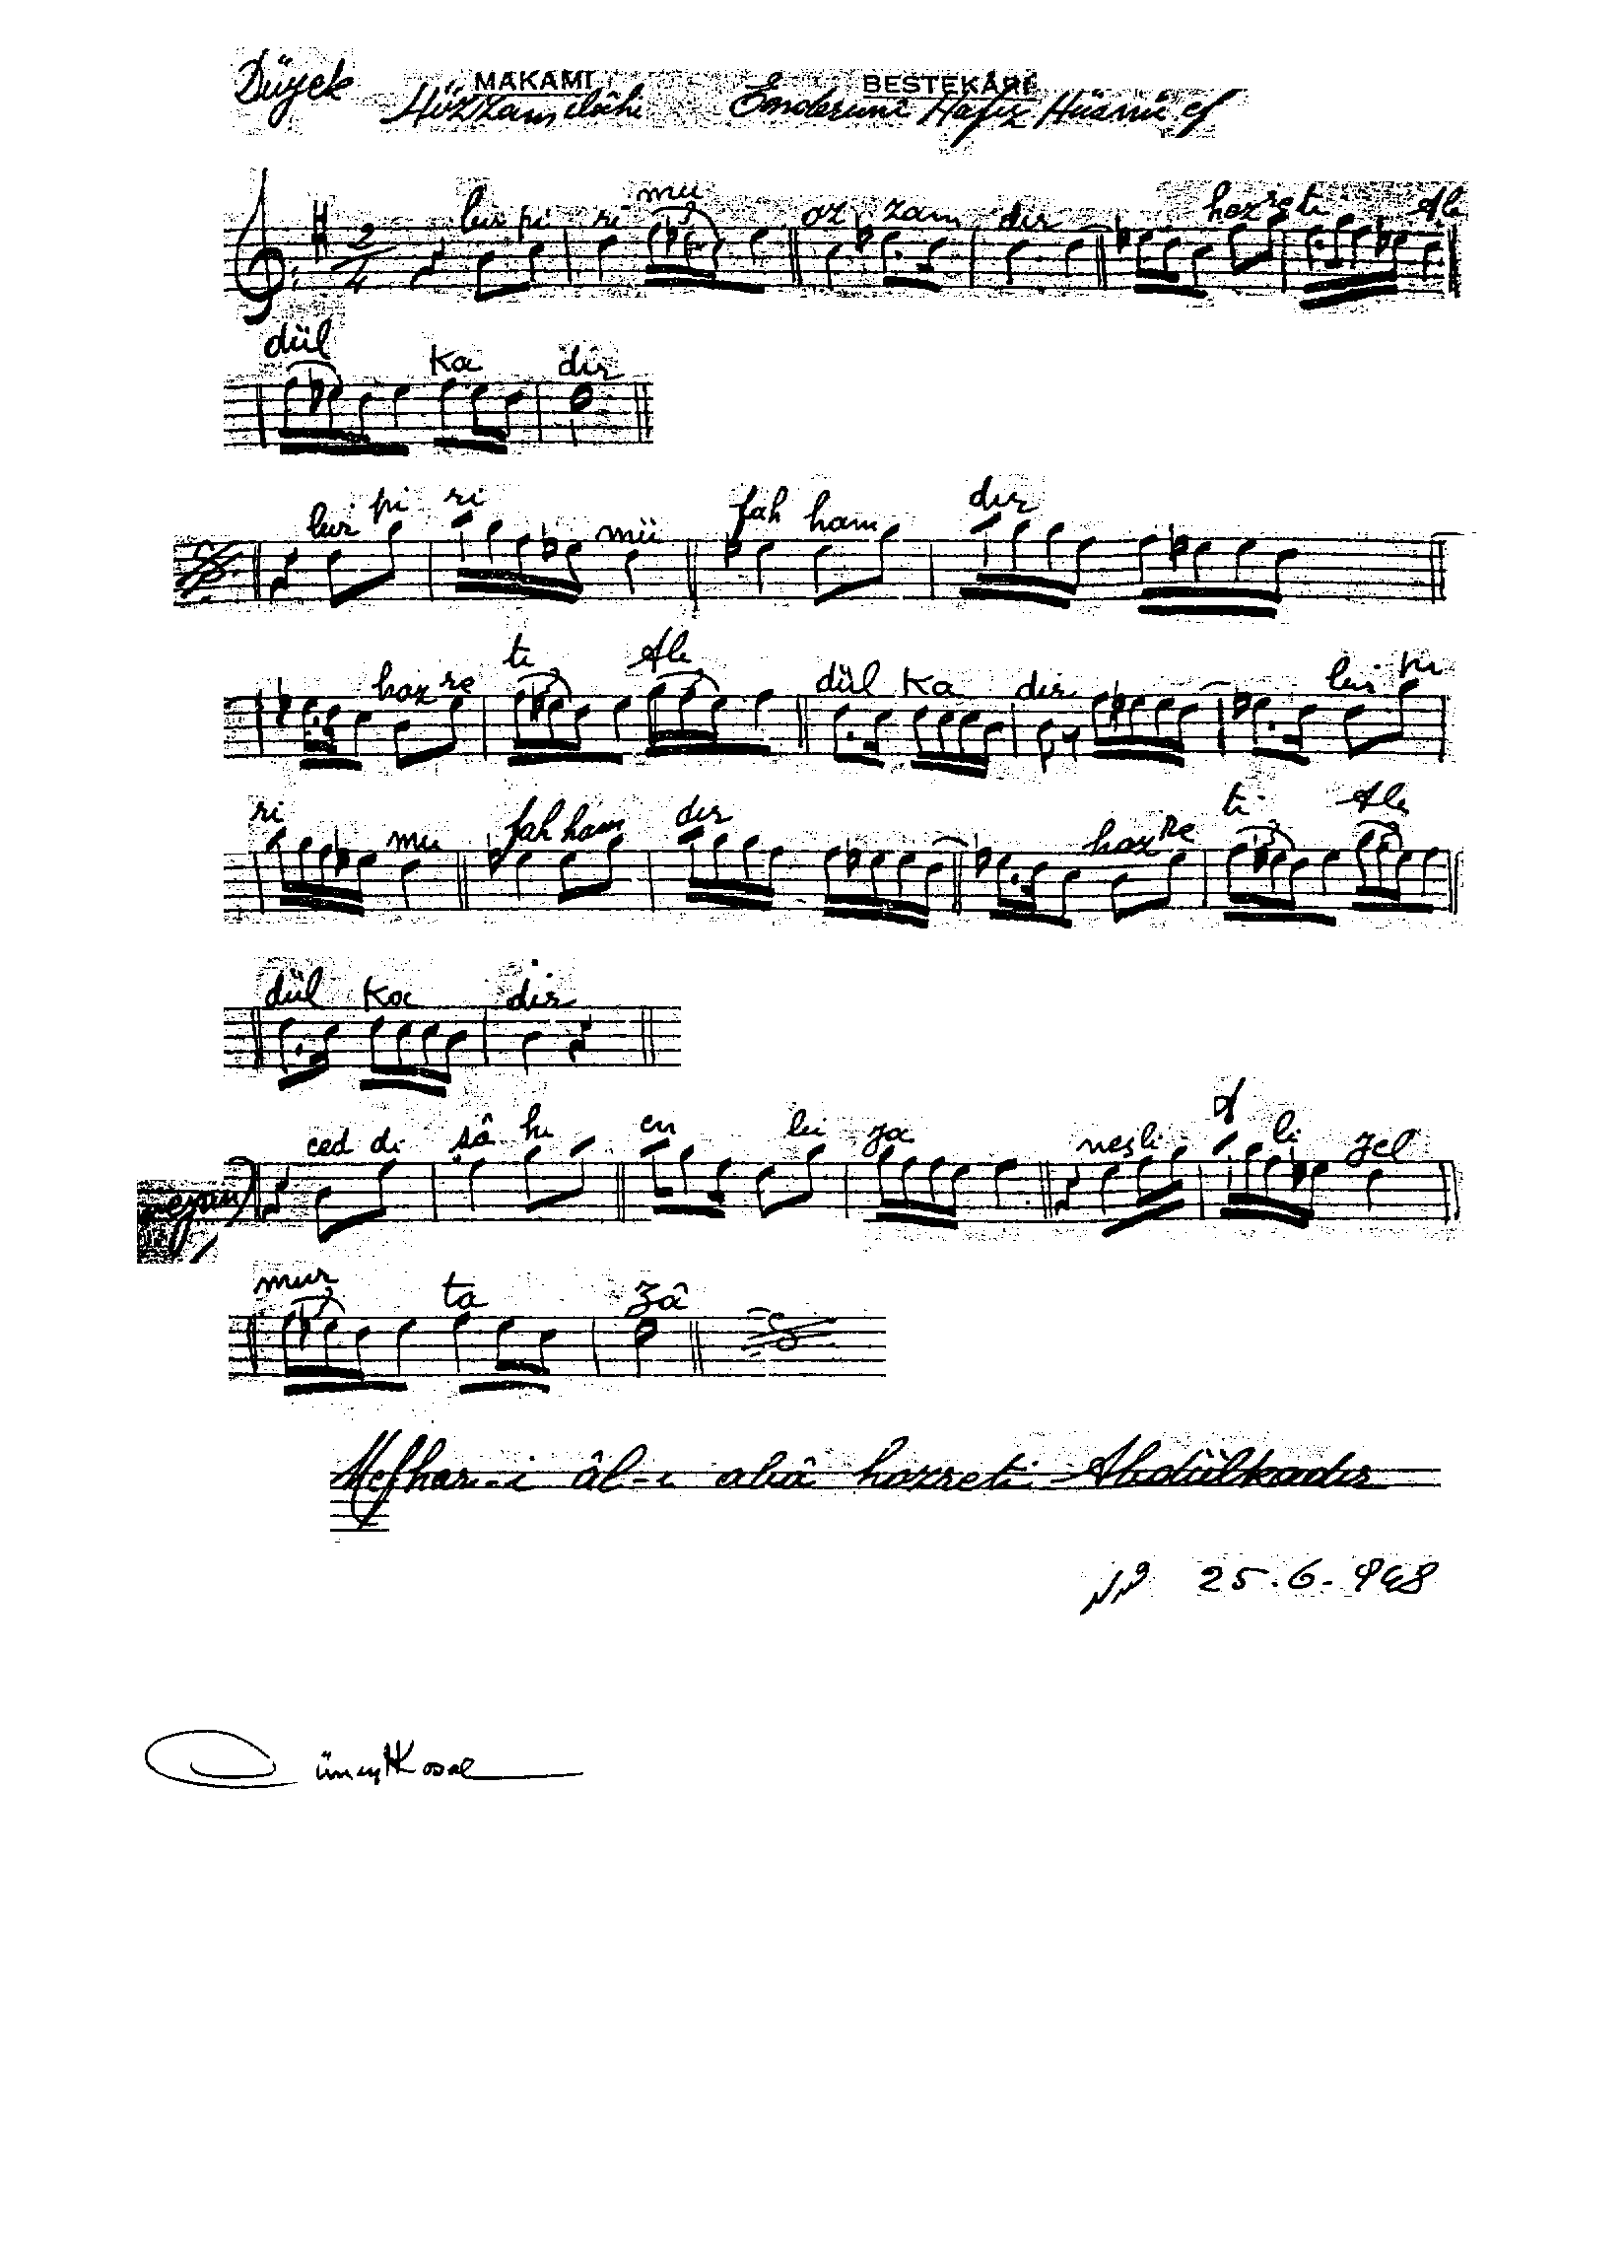 Düyek MAKAMI BESTEKÂRI
Hüzzam ilâhi Enderuni Hafız Hüsnü ef
2/4 bir pi ri mu az zam dır haz re ti Ab
dül Ka dir
bir pi ri mü fah ham dır
haz re ti Ab dül Ka dir bir pi
ri mu fah ham dır haz re ti Ab
dül Ka dir
ced di şâ hı en bi ya nesli A li yel
mur ta zâ
Mefhar-i âl-ı abâ hazreti Abdülkadir
25.6.968
Cüneyt Kosal